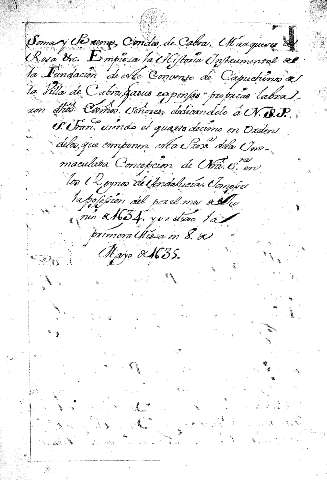 Soma, y Condes, de Cabra, Marqueses de
Rosa &c. Empieza la Historia Instrumental de
la Fundación de este Convento de Capuchinos de
la Villa de Cabra, a cuias expensas propias labra
ron Exmos Señores dedicandole a N. S. P.
S. Fran. siendo el quarto decimo en Orden
de los que componen esta Prov.a de la Ynn
maculada Concepcion de Nra. S.ra en
los Reynos de Andalucia. Tomose
la posesion del por el mes de
nio de 1634. y se dixo la
primera Misa en 8. de
Mayo de 1635.